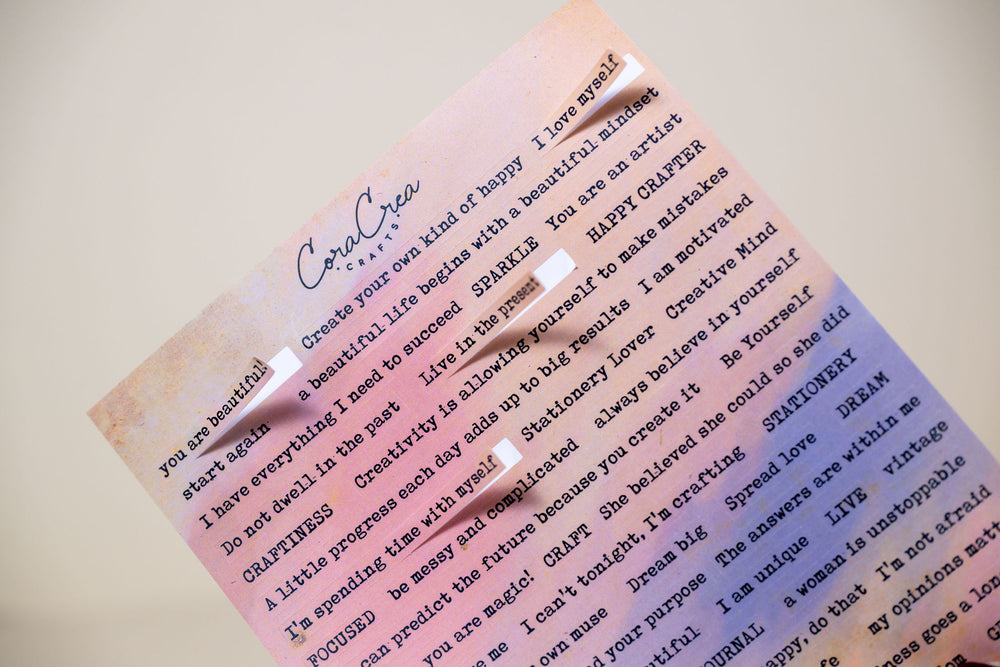 CoraCrea
CRAFTS
you are beautiful! Create your own kind of happy I love myself
start again a beautiful life begins with a beautiful mindset
I have everything I need to succeed SPARKLE You are an artist
Do not dwell in the past Live in the present HAPPY CRAFTER
CRAFTINESS Creativity is allowing yourself to make mistakes
A little progress each day adds up to big results I am motivated
I'm spending time with myself Stationery Lover Creative Mind
FOCUSED be messy and complicated always believe in yourself
can predict the future because you create it Be Yourself
you are magic! CRAFT She believed she could so she did
me I can't tonight, I'm crafting STATIONERY
own muse Dream big Spread love DREAM
your purpose The answers are within me
I am unique LIVE vintage
a woman is unstoppable
do that I'm not afraid
my opinions
goes a